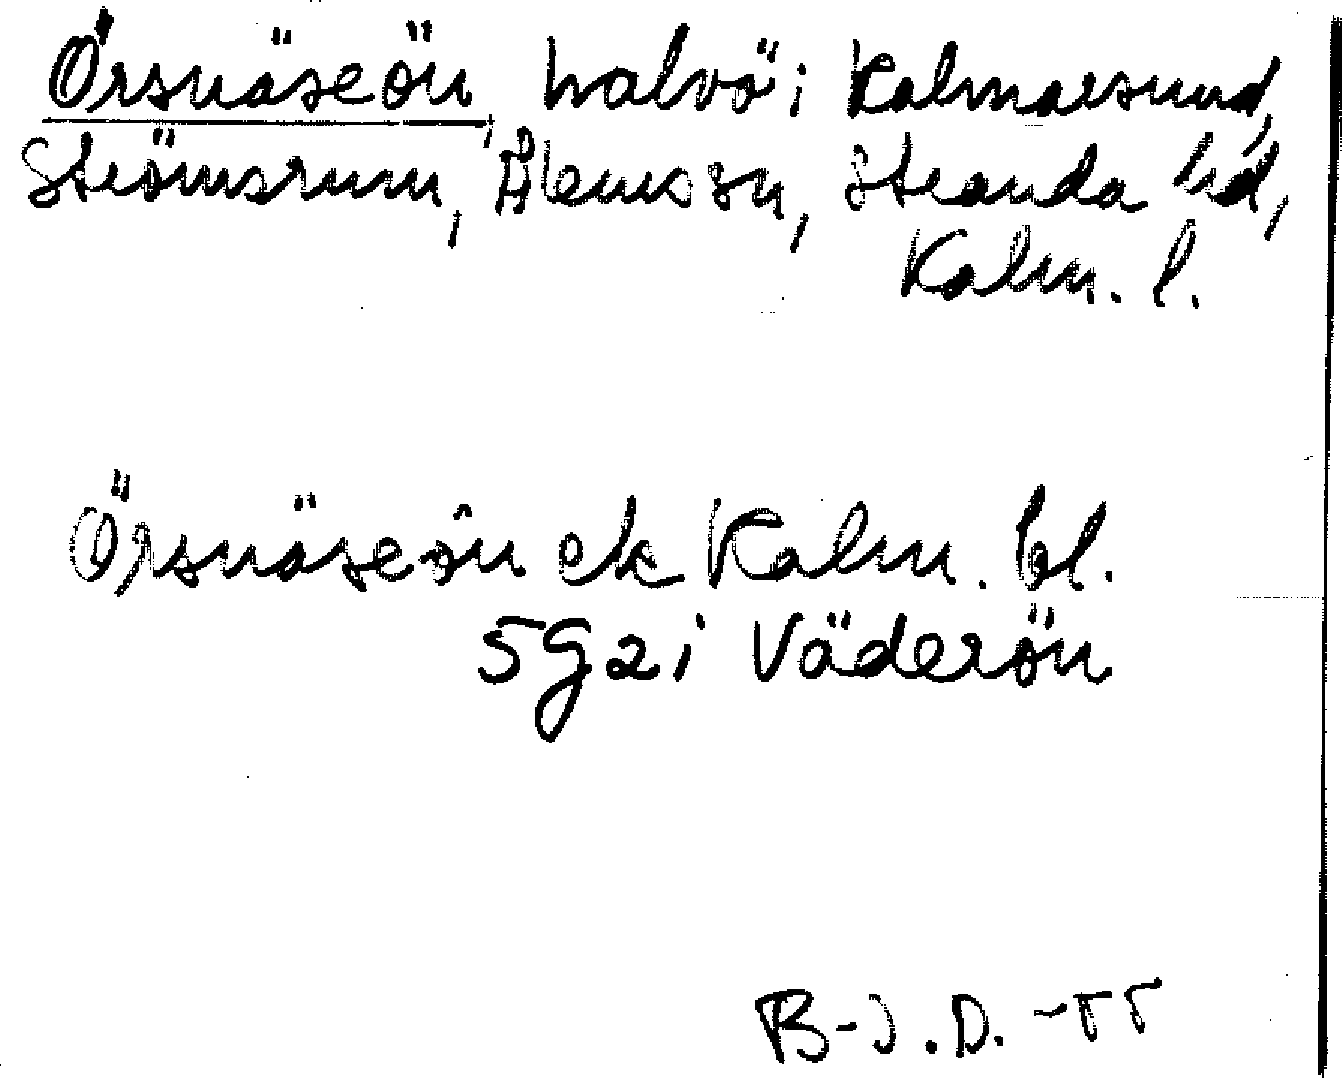 Örsnäseön, halvö i Kalmarsund,
Strömsrum, Ålems sn, Stranda hd,
Kalm. l.
Örsnäseön ek Kalm. bl.
5G2i Väderön
B-J.D. -55